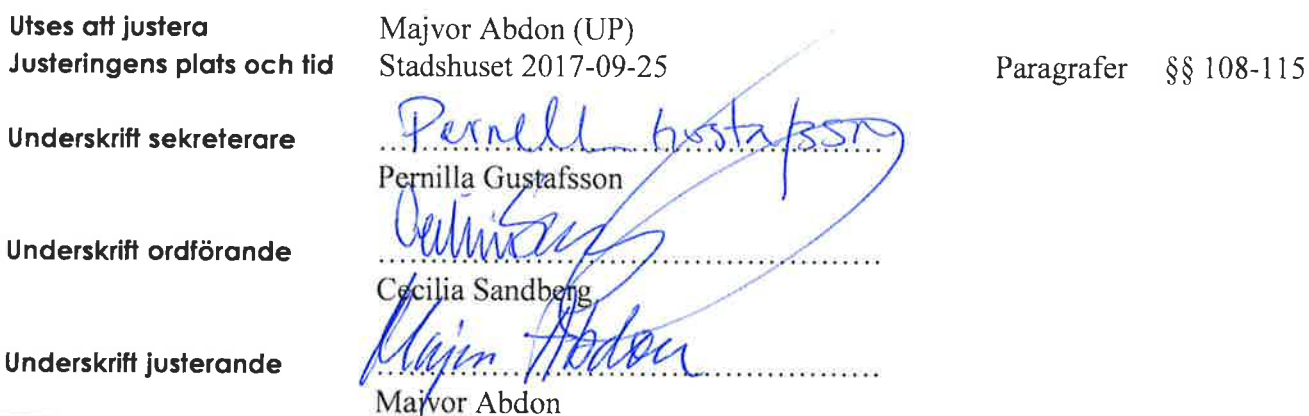 Utses att justera Majvor Abdon (UP)
Justeringens plats och tid Stadshuset 2017-09-25 Paragrafer §§ 108-115
Underskrift sekreterare Pernilla Gustafsson
Pernilla Gustafsson
Underskrift ordförande
Cecilia Sandberg
Underskrift justerande Majvor Abdon
Majvor Abdon